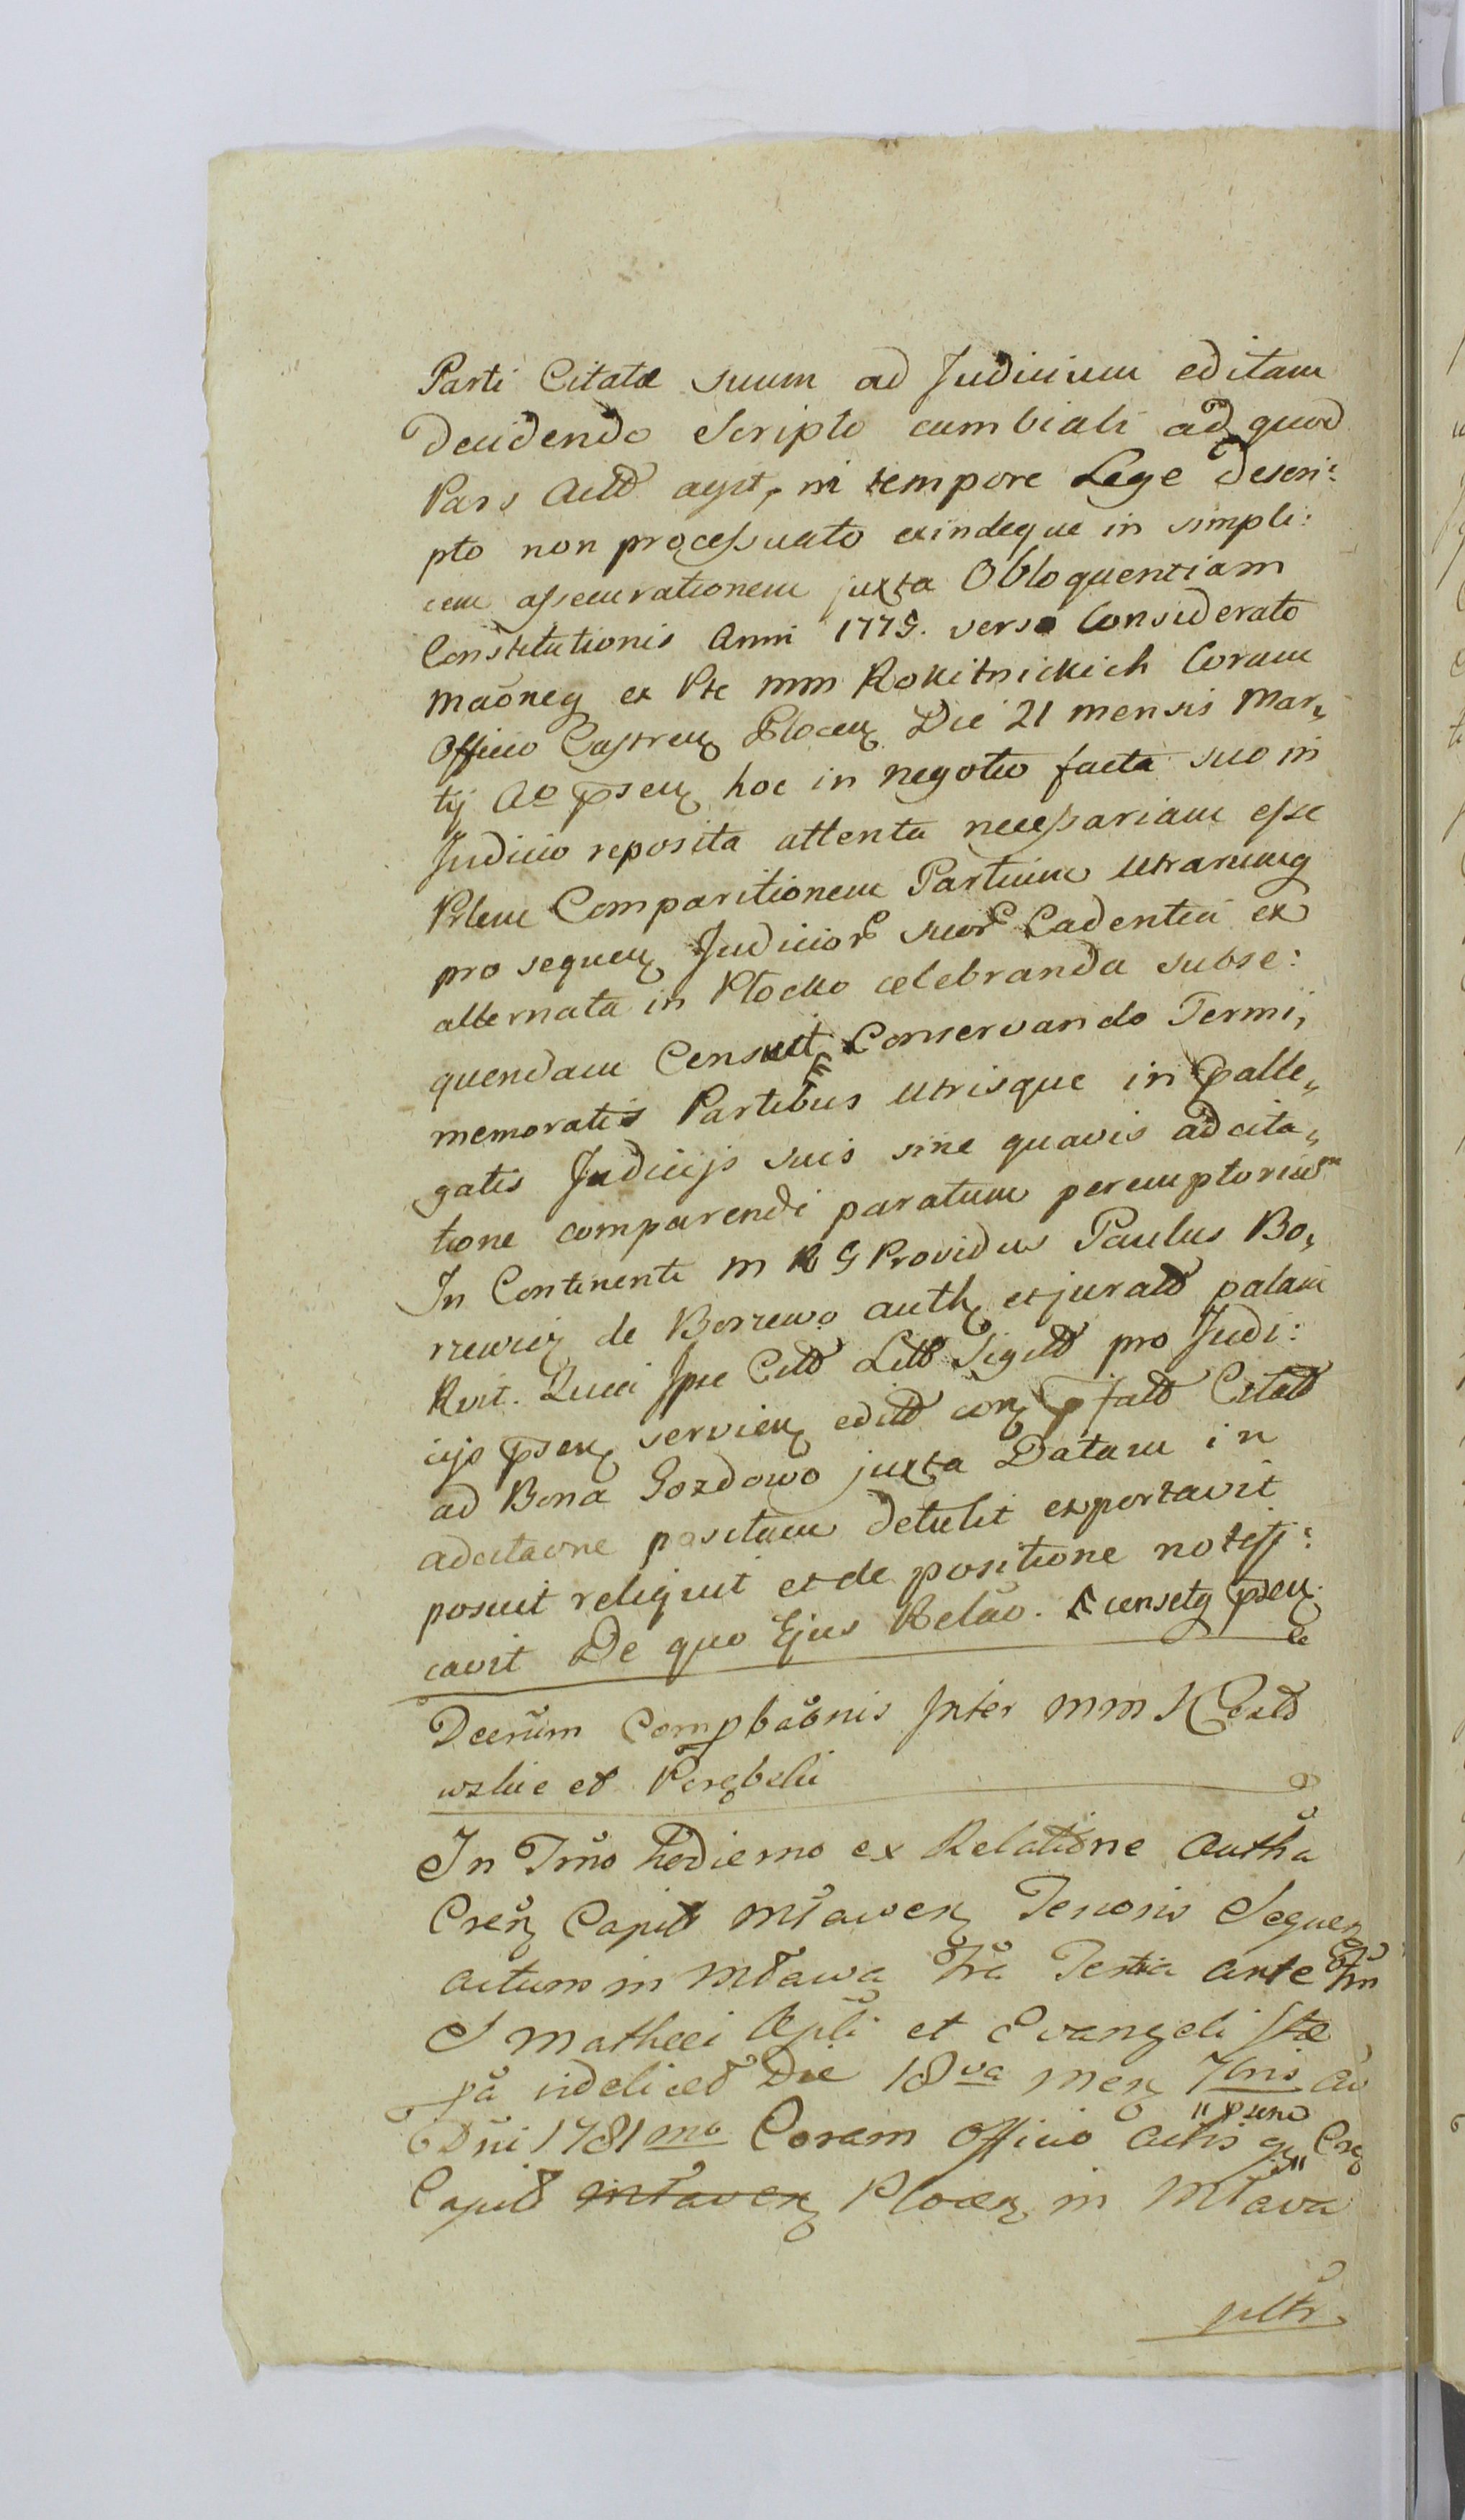 Parti Citatæ suum ad Judicium editam
decidendo Scripto cambiali ad quod
Pars Actd agit, in tempore Lege descri:
pto non processuato exindeque in simpli:
cem assecurationem juxta Obloquentiam
Constitutionis Anni 1775. verso Considerato
ex Pte mm Rokitnickich Coram
Officio Castren Plocen Die 21 mensis Mar„
tij Ao psen hoc in negotio facta suo in
Judicio reposita attenta necessariam esse
Comparitionem Partium utrarumq
pro sequen Judicior suor Cadentia ex
alternata in Płocko celebranda subse:
quendam Censuit Conservando Termi„
memoratis Partibus utrisque in palle„
gatis Judicijs suis sine quavis adcita„
tione comparendi paratum peremptorium
In Continenti M R G Providus Paulus Bo„
de Borzewo auth et jurald palam
Rvit. Quia Ipse Citd Litt Sigild pro Judi:
cijs psen servien editd con Citatd
ad Bona Gozdowo juxta Datam in
adcitaone positam detulit exportavit
posuit reliquit et de positione notifi:
cavit De quo Ejus Relao. psen
Decrum Inter mm
wskie et Porębski
In Trno hodierno ex Relatione Autha
Cren Capitt Mławen Tenoris Sequen
actum in Mława fra Tertia ante
S Mathei Apli et Evangelistæ
videlicet Die 18va men 7bris Ao
Dni 1781mo Coram Officio Actis Cren
psenc
Capitt Mławen Plocen in Mława